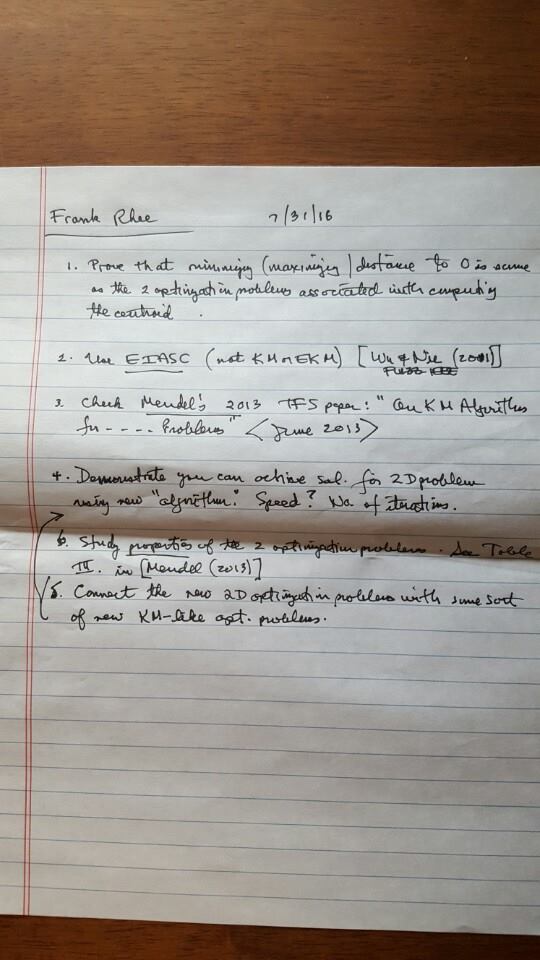 Frank Rhee 7/31/16
1. Prove that minimizing (maximizing) distance to 0 is same
as the 2 optimization problems associated with computing
the centroid.
2. Use EIASC (not KM or EKM) [Wu & Nie (2011)]
3. Check Mendel's 2013 TFS paper: "On KM Algorithms
for ---- Problems" <June 2013>
4. Demonstrate you can achieve sol. for 2D problem
using new "algorithm." Speed? No. of iterations.
6. Study properties of the 2 optimization problems. See Table
IV. in [Mendel (2013)]
5. Connect the new 2D optimization problems with some sort
of new KM-like opt. problems.